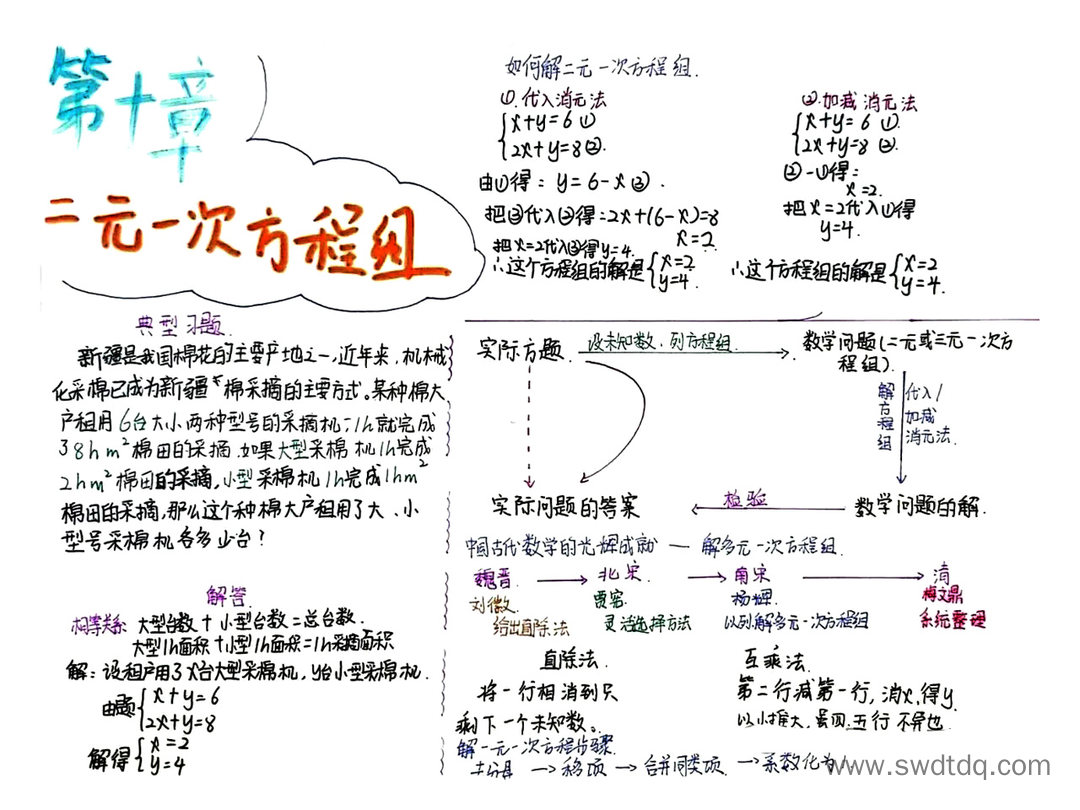 第十章
二元一次方程组
如何解二元一次方程组.
①.代入消元法
x+y=6 ①
2x+y=8 ②.
由①得: y=6-x ③.
把③代入②得:2x+(6-x)=8
x=2.
把x=2代入③得y=4.
∴这个方程组的解是 x=2
y=4.
②.加减消元法
x+y=6 ①.
2x+y=8 ②.
②-①得:
x=2.
把x=2代入①得
y=4.
∴这个方程组的解是 x=2
y=4.
典型习题.
新疆是我国棉花的主要产地之一,近年来,机械
化采棉已成为新疆棉采摘的主要方式。某种棉大
户租用6台大小两种型号的采摘机,1h就完成
8hm²棉田的采摘.如果大型采棉机1h完成
2hm²棉田的采摘,小型采棉机1h完成1hm²
棉田的采摘,那么这个种棉大户租用了大、小
型号采棉机各多少台?
解答.
相等关系 大型台数+小型台数=总台数.
大型1h面积+小型1h面积=1h采摘面积
解:设租户用了x台大型采棉机,y台小型采棉机.
由题 x+y=6
2x+y=8
解得 x=2
y=4
实际方题.
设未知数,列方程组.
数学问题(二元或三元一次方
程组).
解方程组
代入/
加减
消元法.
实际问题的答案
检验
数学问题的解.
中国古代数学的光辉成就 — 解多元一次方程组.
魏晋 → 北宋 → 南宋 → 清
刘徽. 贾宪. 杨辉. 梅文鼎
给出直除法 灵活选择方法 以列解多元一次方程组 系统整理
直除法.
将一行相消到只
剩下一个未知数。
互乘法.
第二行减第一行,消x,得y.
以小推大,虽四、五行不异也.
解一元一次方程步骤.
→移项→合并同类项→系数化为1
www.swdtdq.com